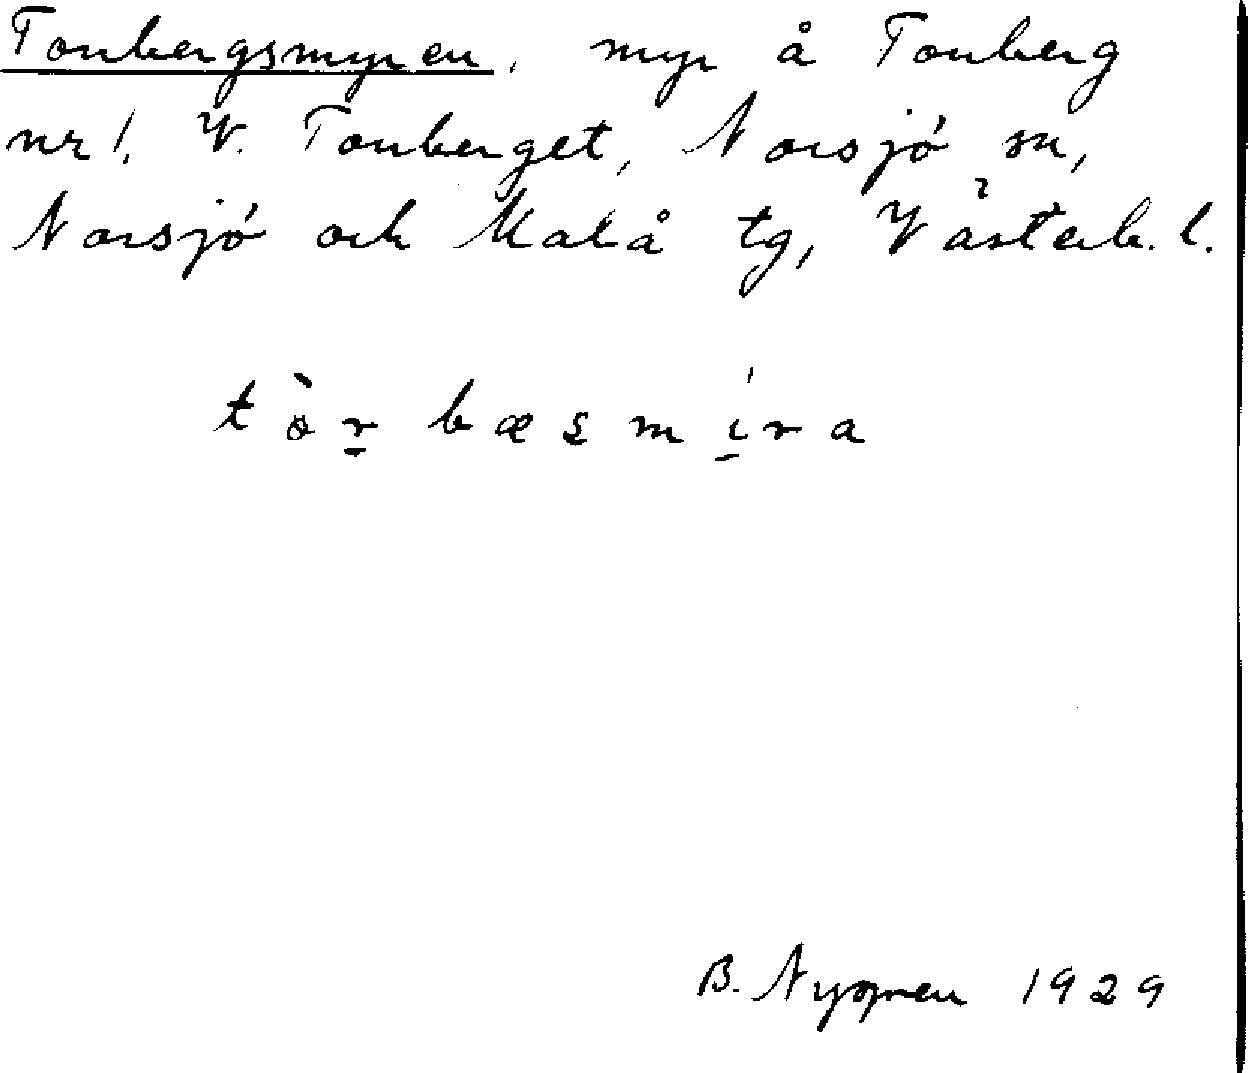 Torbergsmyren, myr å Torberg
nr 1, V. Torberget, Norsjö sn,
Norsjö och Malå tg, Västerb. l.
tò̱r bæsmíra
B. Nygren 1929